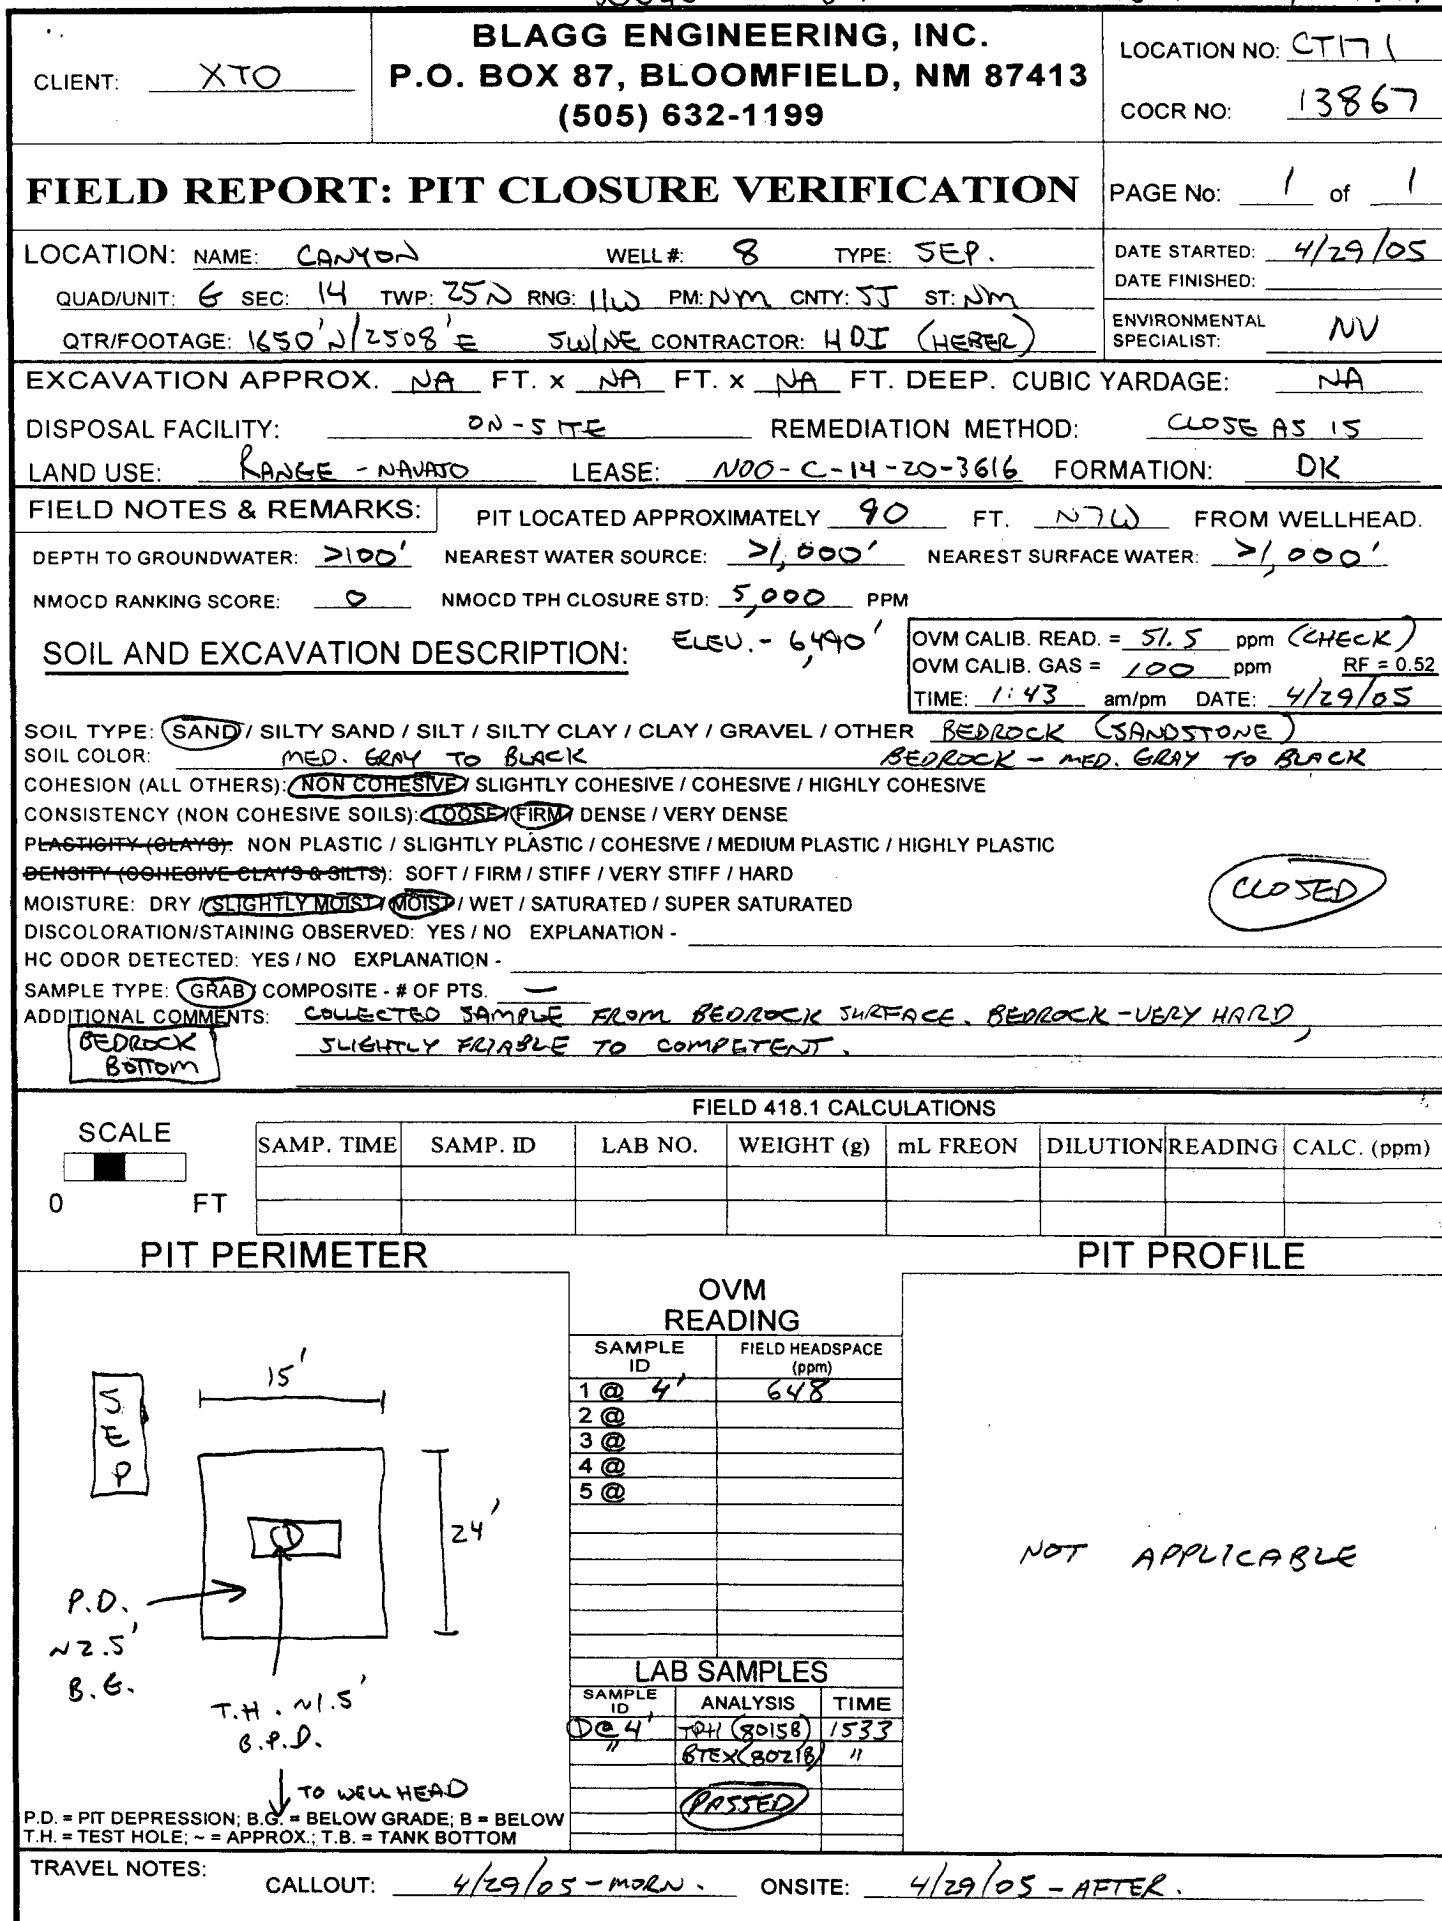 BLAGG ENGINEERING, INC.
P.O. BOX 87, BLOOMFIELD, NM 87413
(505) 632-1199
CLIENT: XTO
LOCATION NO: CT171
COCR NO: 13867
FIELD REPORT: PIT CLOSURE VERIFICATION
PAGE No: 1 of 1
LOCATION: NAME: CANYON WELL #: 8 TYPE: SEP.
QUAD/UNIT: G SEC: 14 TWP: 25N RNG: 11W PM: NM CNTY: SJ ST: NM
QTR/FOOTAGE: 1650'N/2508'E SW/NE CONTRACTOR: HDI (HEBER)
DATE STARTED: 4/29/05
DATE FINISHED:
ENVIRONMENTAL SPECIALIST: NV
EXCAVATION APPROX. NA FT. x NA FT. x NA FT. DEEP. CUBIC YARDAGE: NA
DISPOSAL FACILITY: ON-SITE REMEDIATION METHOD: CLOSE AS IS
LAND USE: RANGE - NAVAJO LEASE: NOO-C-14-20-3616 FORMATION: DK
FIELD NOTES & REMARKS: PIT LOCATED APPROXIMATELY 90 FT. N7W FROM WELLHEAD.
DEPTH TO GROUNDWATER: >100' NEAREST WATER SOURCE: >1,000' NEAREST SURFACE WATER: >1,000'
NMOCD RANKING SCORE: 0 NMOCD TPH CLOSURE STD: 5,000 PPM
SOIL AND EXCAVATION DESCRIPTION: ELEV. - 6,490'
OVM CALIB. READ. = 51.5 ppm (CHECK)
OVM CALIB. GAS = 100 ppm RF = 0.52
TIME: 1:43 am/pm DATE: 4/29/05
SOIL TYPE: SAND / SILTY SAND / SILT / SILTY CLAY / CLAY / GRAVEL / OTHER BEDROCK (SANDSTONE)
SOIL COLOR: MED. GRAY TO BLACK BEDROCK - MED. GRAY TO BLACK
COHESION (ALL OTHERS): NON COHESIVE / SLIGHTLY COHESIVE / COHESIVE / HIGHLY COHESIVE
CONSISTENCY (NON COHESIVE SOILS): LOOSE / FIRM / DENSE / VERY DENSE
PLASTICITY (CLAYS): NON PLASTIC / SLIGHTLY PLASTIC / COHESIVE / MEDIUM PLASTIC / HIGHLY PLASTIC
DENSITY (COHESIVE CLAYS & SILTS): SOFT / FIRM / STIFF / VERY STIFF / HARD
MOISTURE: DRY / SLIGHTLY MOIST / MOIST / WET / SATURATED / SUPER SATURATED
CLOSED
DISCOLORATION/STAINING OBSERVED: YES / NO EXPLANATION -
HC ODOR DETECTED: YES / NO EXPLANATION -
SAMPLE TYPE: GRAB / COMPOSITE - # OF PTS. —
ADDITIONAL COMMENTS: COLLECTED SAMPLE FROM BEDROCK SURFACE. BEDROCK - VERY HARD,
SLIGHTLY FRIABLE TO COMPETENT.
BEDROCK
BOTTOM
FIELD 418.1 CALCULATIONS
SCALE
0 FT
SAMP. TIME SAMP. ID LAB NO. WEIGHT (g) mL FREON DILUTION READING CALC. (ppm)
PIT PERIMETER
PIT PROFILE
OVM
READING
SAMPLE ID FIELD HEADSPACE (ppm)
1 @ 4' 648
2 @
3 @
4 @
5 @
15'
SEP
24'
P.D.
~2.5'
B.G.
T.H. ~1.5'
B.P.D.
TO WELLHEAD
NOT APPLICABLE
LAB SAMPLES
SAMPLE ID ANALYSIS TIME
①@4' TPH (8015B) 1533
" BTEX (8021B) "
PASSED
P.D. = PIT DEPRESSION; B.G. = BELOW GRADE; B = BELOW
T.H. = TEST HOLE; ~ = APPROX.; T.B. = TANK BOTTOM
TRAVEL NOTES: CALLOUT: 4/29/05 - MORN. ONSITE: 4/29/05 - AFTER.